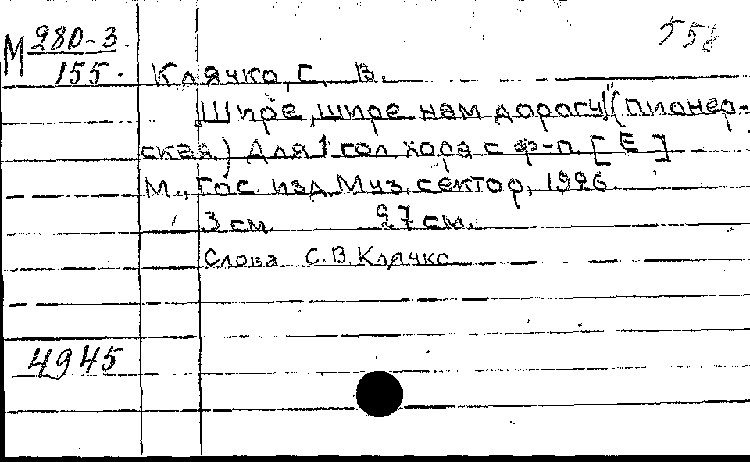 М 280-3
155.
558
Клячко, С. В.
Шире, шире нам дорогу! (пионер-
ская) Для 1 гол хора с ф-п. [E]
М., Гос. изд. Муз. сектор, 1926
3 см 27 см.
Слова С.В. Клячко
4945